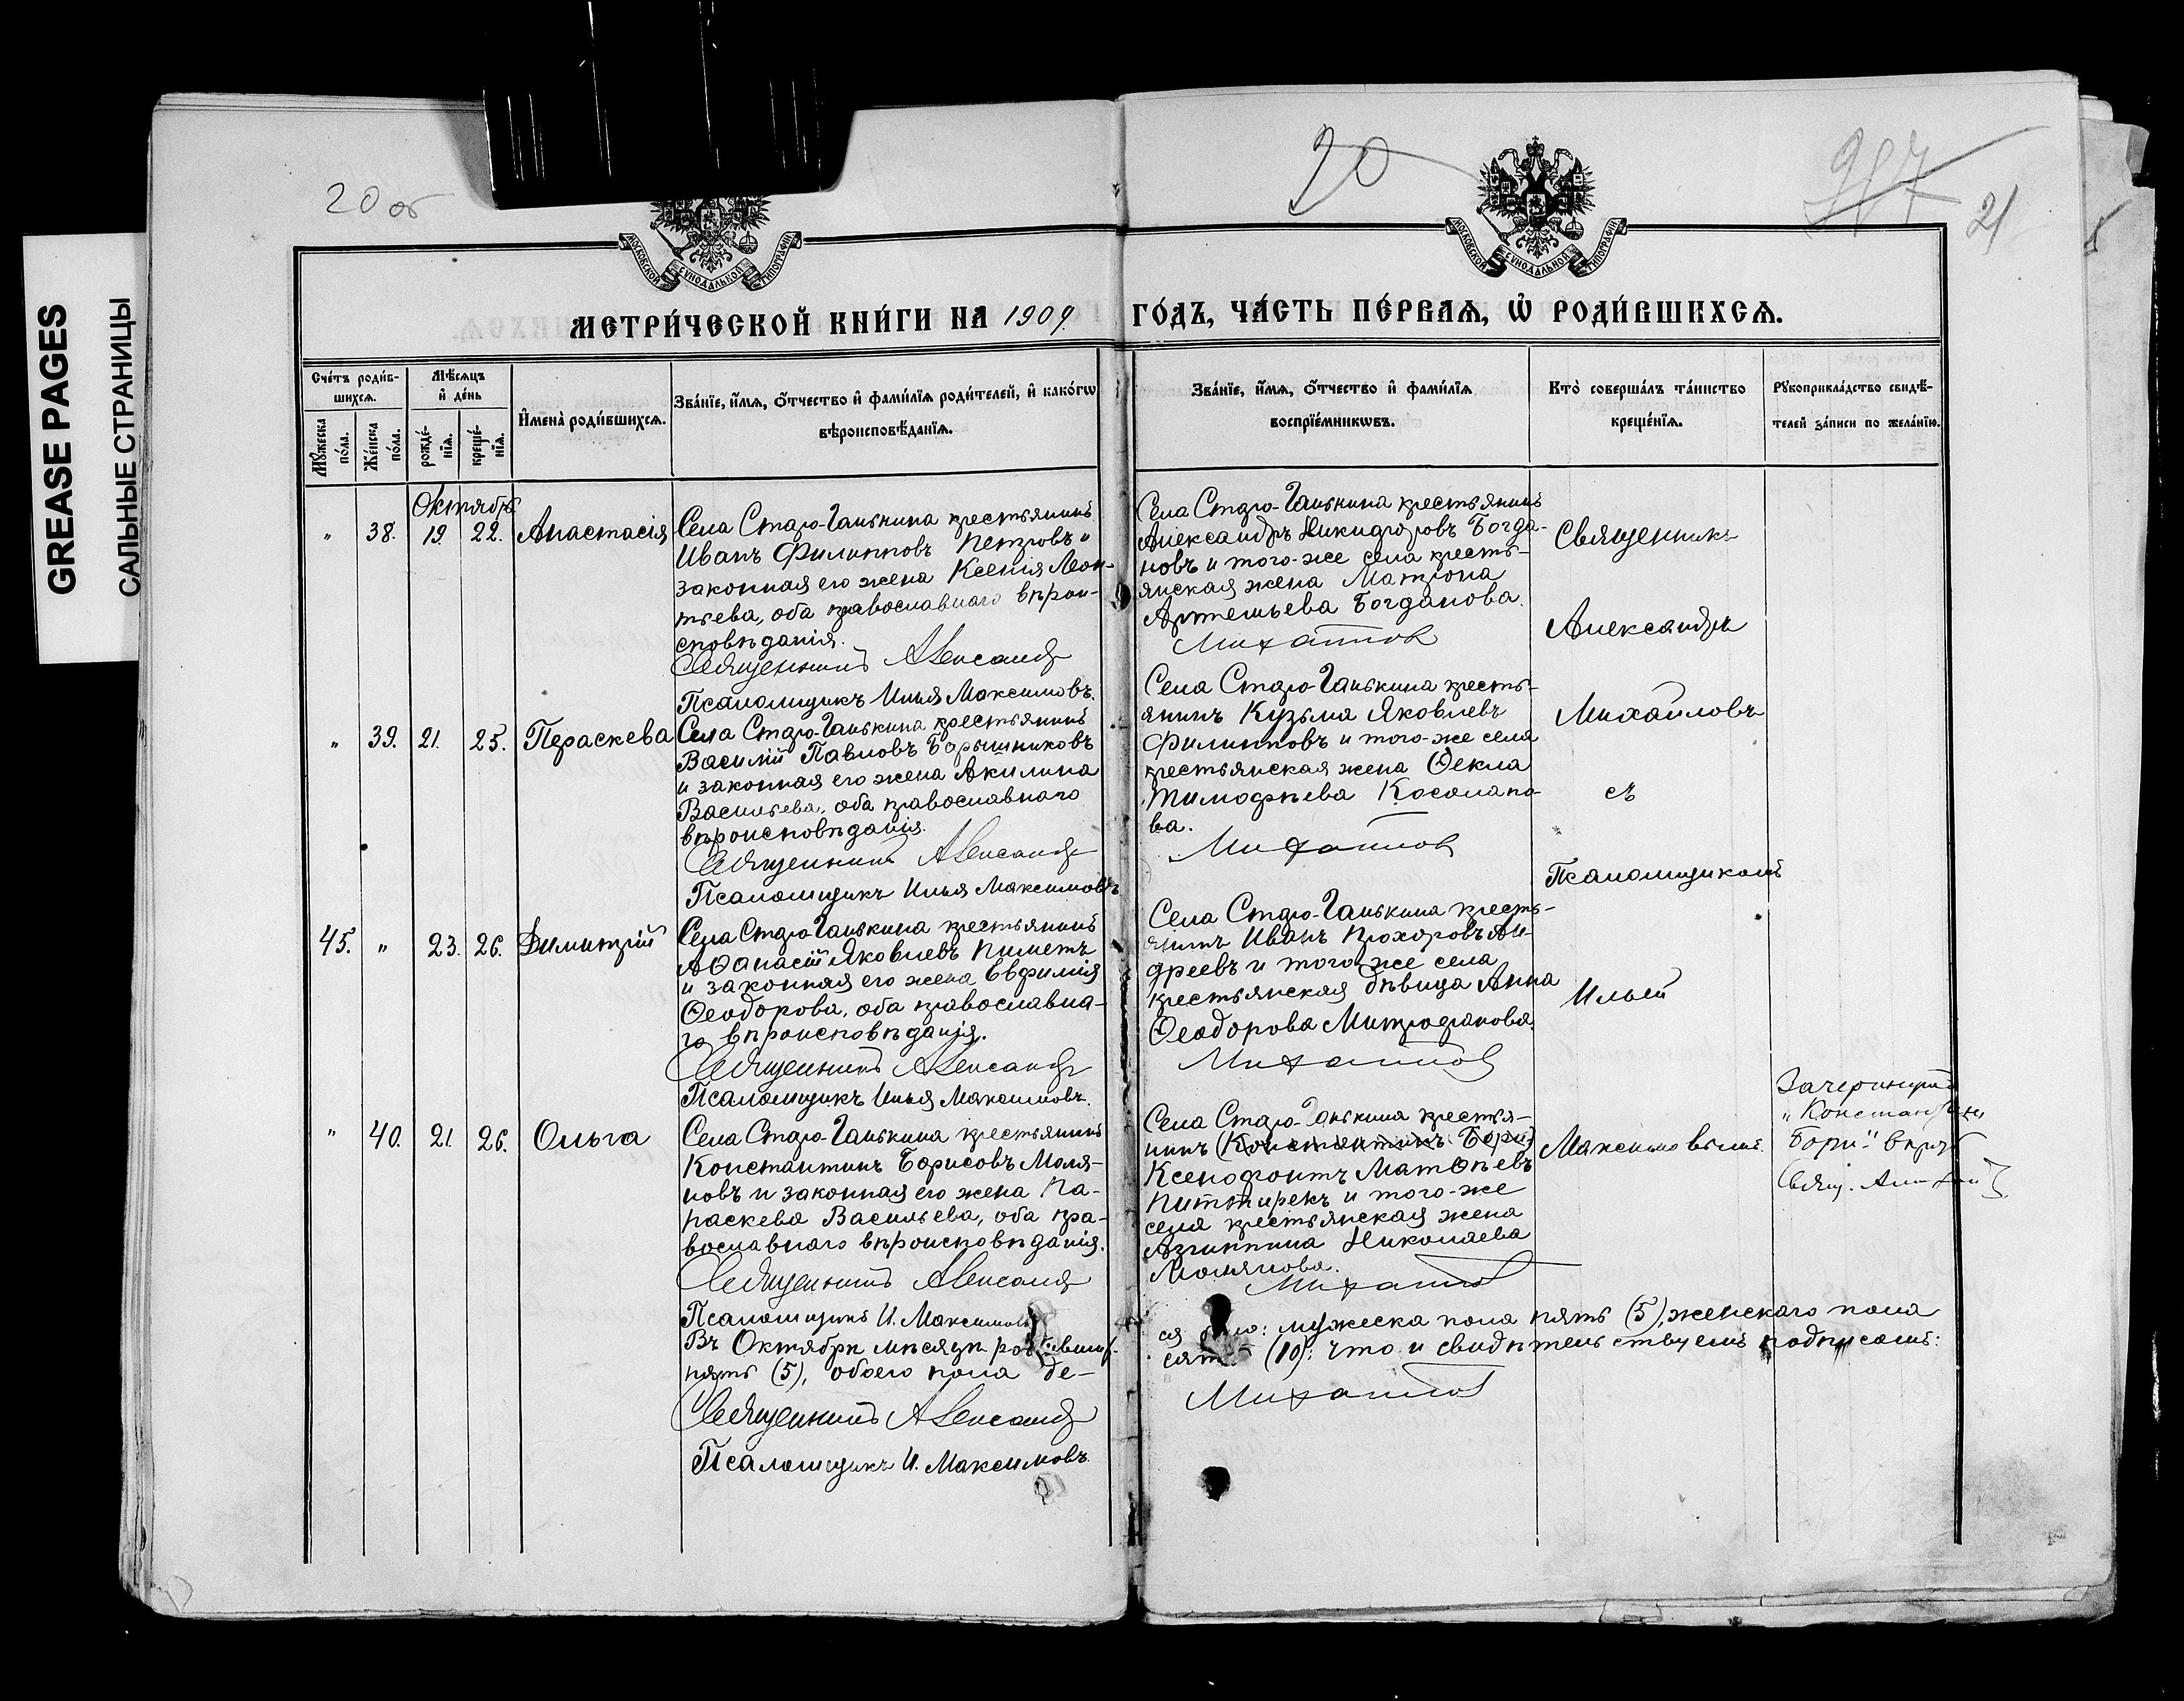 GREASE PAGES
САЛЬНЫЕ СТРАНИЦЫ
20 об
20
21
МОСКОВСКОЙ СѴНОДАЛЬНОЙ ТИПОГРАФІИ
МОСКОВСКОЙ СѴНОДАЛЬНОЙ ТИПОГРАФІИ
МЕТРИ́ЧЕСКОЙ КНИ́ГИ НА 1909. ГО́ДЪ, ЧА́СТЬ ПЕ́РВАѦ, Ѿ РОДИ́ВШИХСѦ.
Сче́тъ роди́в-
шихсѧ.
Мꙋжеска по́ла.
Же́нска по́ла.
Мѣ́сѧцъ
и҆ де́нь
рожде́-
нїѧ.
креще́-
нїѧ.
И҆мена̀ роди́вшихсѧ.
Зва́нїе, и҆́мѧ, ѻ҆́тчество и҆ фами́лїѧ роди́телей, и҆ како́гѡ
вѣроисповѣ́данїѧ.
Зва́нїе, и҆́мѧ, ѻ҆́тчество и҆ фами́лїѧ
воспрїе́мникѡвъ.
Кто̀ соверша́лъ та́инство
креще́нїѧ.
Рꙋкоприкла́дство свидѣ́-
телей за́писи по жела́нїю.
Октябрь
" 38. 19. 22. Анастасія
Села Старо-Ганькина крестьянинъ
Иванъ Филипповъ Петровъ и
законная его жена Ксенія Леон-
тьева, оба православнаго вѣрои-
сповѣданія.
Священникъ Александр
Псаломщикъ Илья Максимовъ.
Села Старо-Ганькина крестьянинъ
Александръ Никифоровъ Богда-
новъ и того-же села кресть-
янская жена Матрона
Артемьева Богданова.
Михайлов
" 39. 21. 25. Параскева
Села Старо-Ганькина крестьянинъ
Василій Павловъ Барышниковъ
и законная его жена Акилина
Васильева, оба православнаго
вѣроисповѣданія.
Священникъ Александр
Псаломщикъ Илья Максимовъ
Села Старо-Ганькина кресть-
янинъ Кузьма Яковлевъ
Филипповъ и того-же села
крестьянская жена Ѳекла
Тимофѣева Косолапо-
ва.
Михайлов
45. " 23. 26. Димитрій
Села Старо-Ганькина крестьянинъ
Аѳанасій Яковлевъ
и законная его жена Евфимія
Ѳеодорова, оба православна-
го вѣроисповѣданія.
Священникъ Александр
Псаломщикъ Илья Максимовъ.
Села Старо-Ганькина кресть-
янинъ Иванъ Прохоровъ Ан-
дреевъ и того же села
крестьянская дѣвица Анна
Ѳеодорова Митрофанова.
Михайлов
" 40. 21. 26. Ольга
Села Старо-Ганькина крестьянинъ
Константинъ Борисовъ Моля-
новъ и законная его жена Па-
раскева Васильева, оба пра-
вославнаго вѣроисповѣданія.
Священникъ Александр
Псаломщикъ И. Максимовъ
Села Старо-Ганькина крестья-
нинъ (Константинъ Бори)
Ксенофонтъ Матѳѣевъ
и того-же
села крестьянская жена
Агриппина Николаева
Молянова.
Михайлов
Священникъ
Александръ
Михайловъ
съ
Псаломщикомъ
Ильей
Максимовымъ.
Зачеркнуто
"Константин
Бори" вѣрно
Свящ.
Въ Октябрѣ мѣсяцѣ родивших-
ся было: мужеска пола пять (5), женскаго пола
пять (5), обоего пола де-
сять (10): что и свидѣтельствуемъ подписомъ:
Священникъ Александр Михайлов
Псаломщикъ И. Максимовъ.